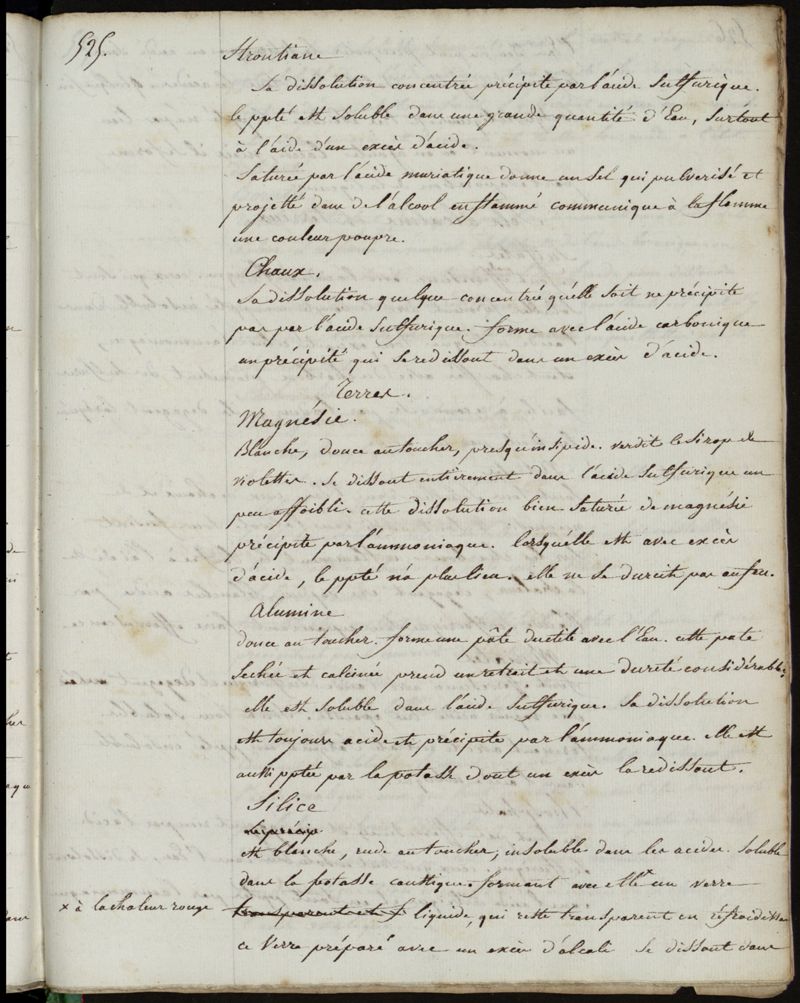 525.
Strontiane
Sa dissolution concentrée précipite par l'acide Sulfurique.
le ppté est soluble dans une grande quantité d'Eau, surtout
à l'aide d'un excès d'acide.
Saturée par l'acide muriatique donne un sel qui pulverisé et
projetté dans de l'alcool enflammé communique à la flamme
une couleur poupre.
Chaux.
Sa dissolution quelque concentrée qu'elle soit ne précipite
pas par l'acide Sulfurique. forme avec l'acide carbonique
un précipité qui se redissout dans un excès d'acide.
Terres.
Magnésie.
Blanche, douce au toucher, presqu'insipide. verdit le sirop de
violettes. se dissout entièrement dans l'acide Sulfurique un
peu affoibli. cette dissolution bien saturée de magnésie
précipite par l'ammoniaque. lorsqu'elle est avec excès
d'acide, le ppté n'a plus lieu. elle ne se durcit pas au feu.
Alumine
douce au toucher. forme une pâte ductile avec l'Eau. cette pate
Sechée et calcinée prend un retrait et une dureté considérable.
elle est soluble dans l'acide Sulfurique. Sa dissolution
est toujours acide et précipite par l'ammoniaque. elle est
aussi pptée par la potasse dont un excès la redissout.
Silice
le précip
est blanche, rude au toucher, insoluble dans les acides. soluble
dans la potasse caustique formant avec elle un verre
x à la chaleur rouge
transparent et f liquide, qui reste transparent en refroidissant
ce Verre préparé avec un excès d'alcali se dissout dans